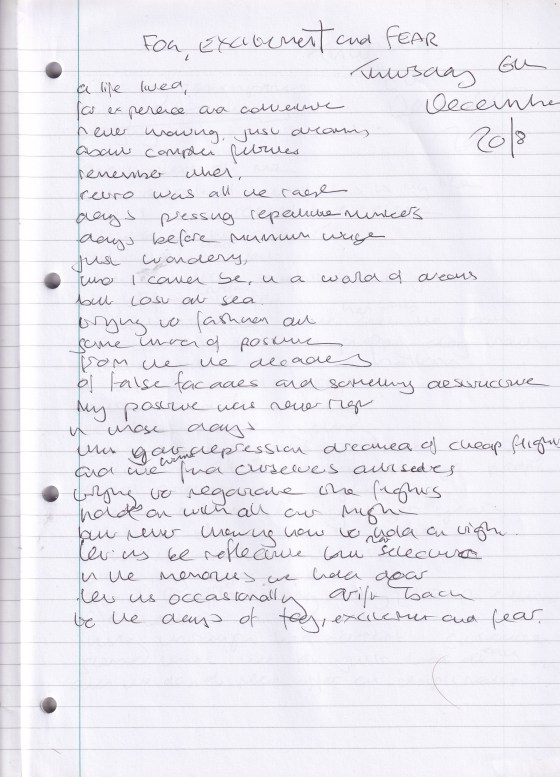 FOG, EXCITEMENT and FEAR
Thursday 6th
December
2018
a life lived,
for experience and adventure
never knowing, just dreaming
about complex futures
remember when,
retro was all the rage
days pressing repetitive numbers
days before minimum wage
just wondering,
who I could be, in a world of dreams
but lost at sea
trying to fashion out
some kind of positive
from the the decades
of false facades and something destructive
my positive was never right
in those days
depression dreamed of cheap flights
and we would find ourselves
trying to the fights
hold on with all our might
but never knowing how to hold on tight
let us be reflective but not selective
in the memories we hold dear
let us occasionally drift back
to the days of fog, excitement and fear.